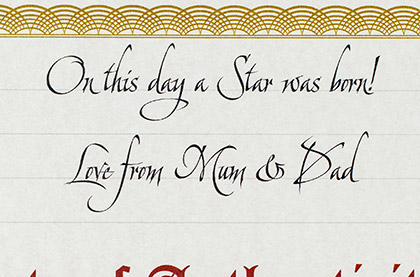 On this day a Star was born!
Love from Mum & Dad
of Authenticit